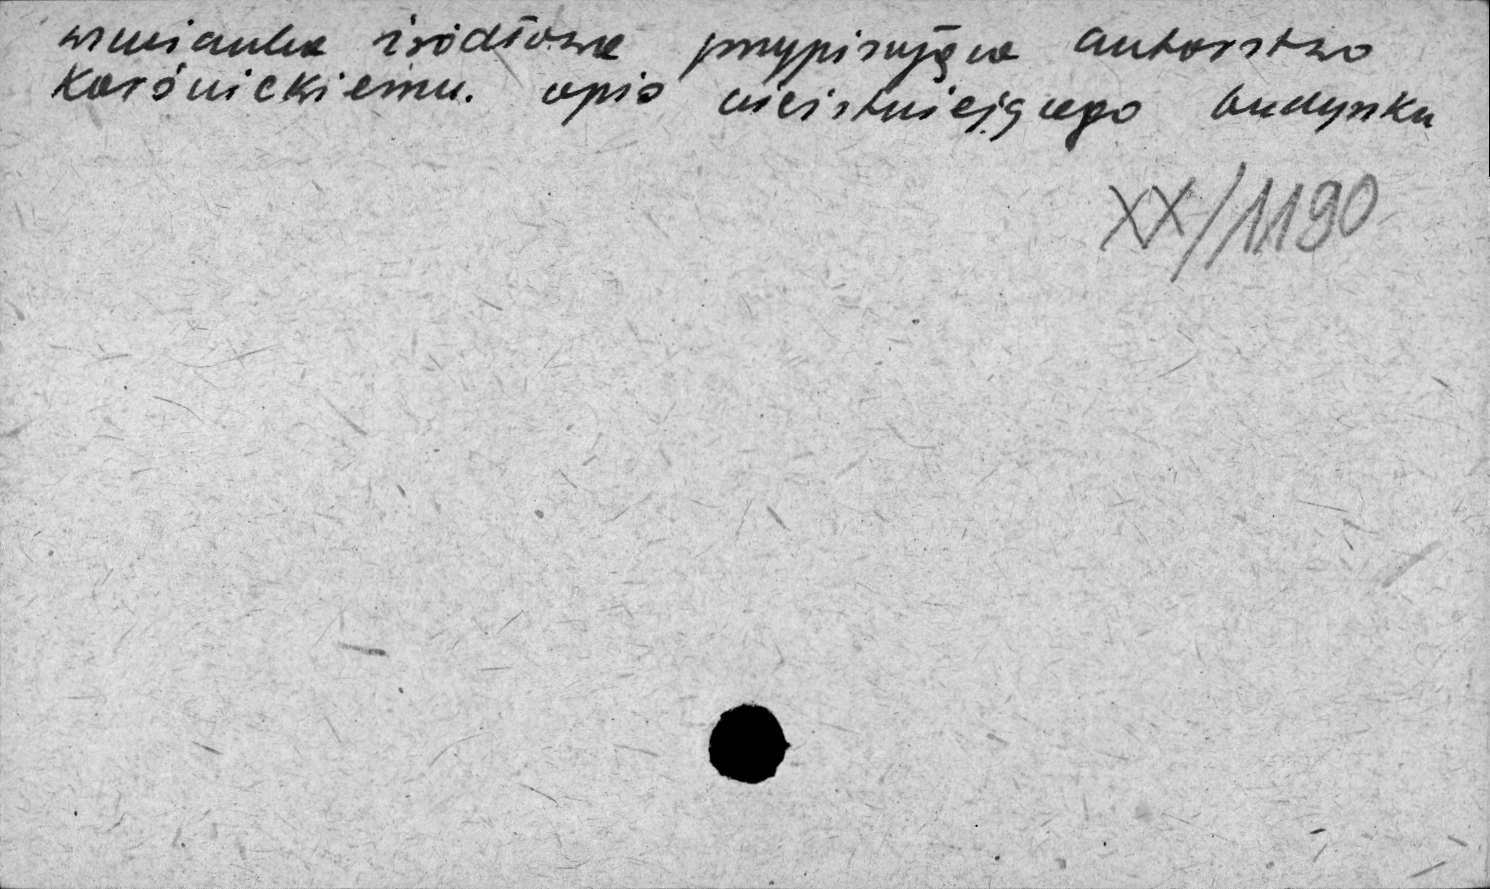 wzmianka źródłowa przypisująca autorstwo
Karśnickiemu. opis nieistniejącego budynku
XX/1190